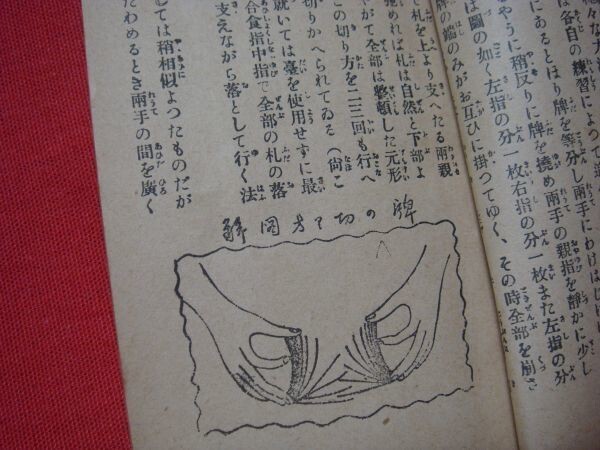 々な方法
は各自の練習によつて
にあるとほり牌を等分し兩手にわけはじ
やうに稍反りに牌を撓め兩手の親指を靜かに少し
は圖の如く左指の分一枚右指の分一枚また左指の分
牌の端のみがお互ひに掛つてゆく、その時全部を崩さ
て札を上より支へたる兩親
弛めれば札は自然と下部よ
やがて全部は整頓した元形
この切り方を二三回も行へ
切りかへられてゐる（尙こ
就いては臺を使用せずに最
合食指中指で全部の札の落
支えながら落として行く法
しては稍相似よつたものだが
たわめるとき兩手の間を廣く
牌の切り方圖解